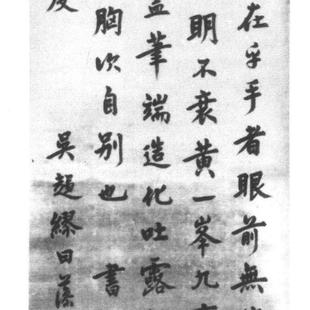 在乎手者眼前無
明不衰黃一峯九
盖筆端造化吐露
胸次自别也 書
吳趨繆曰藻